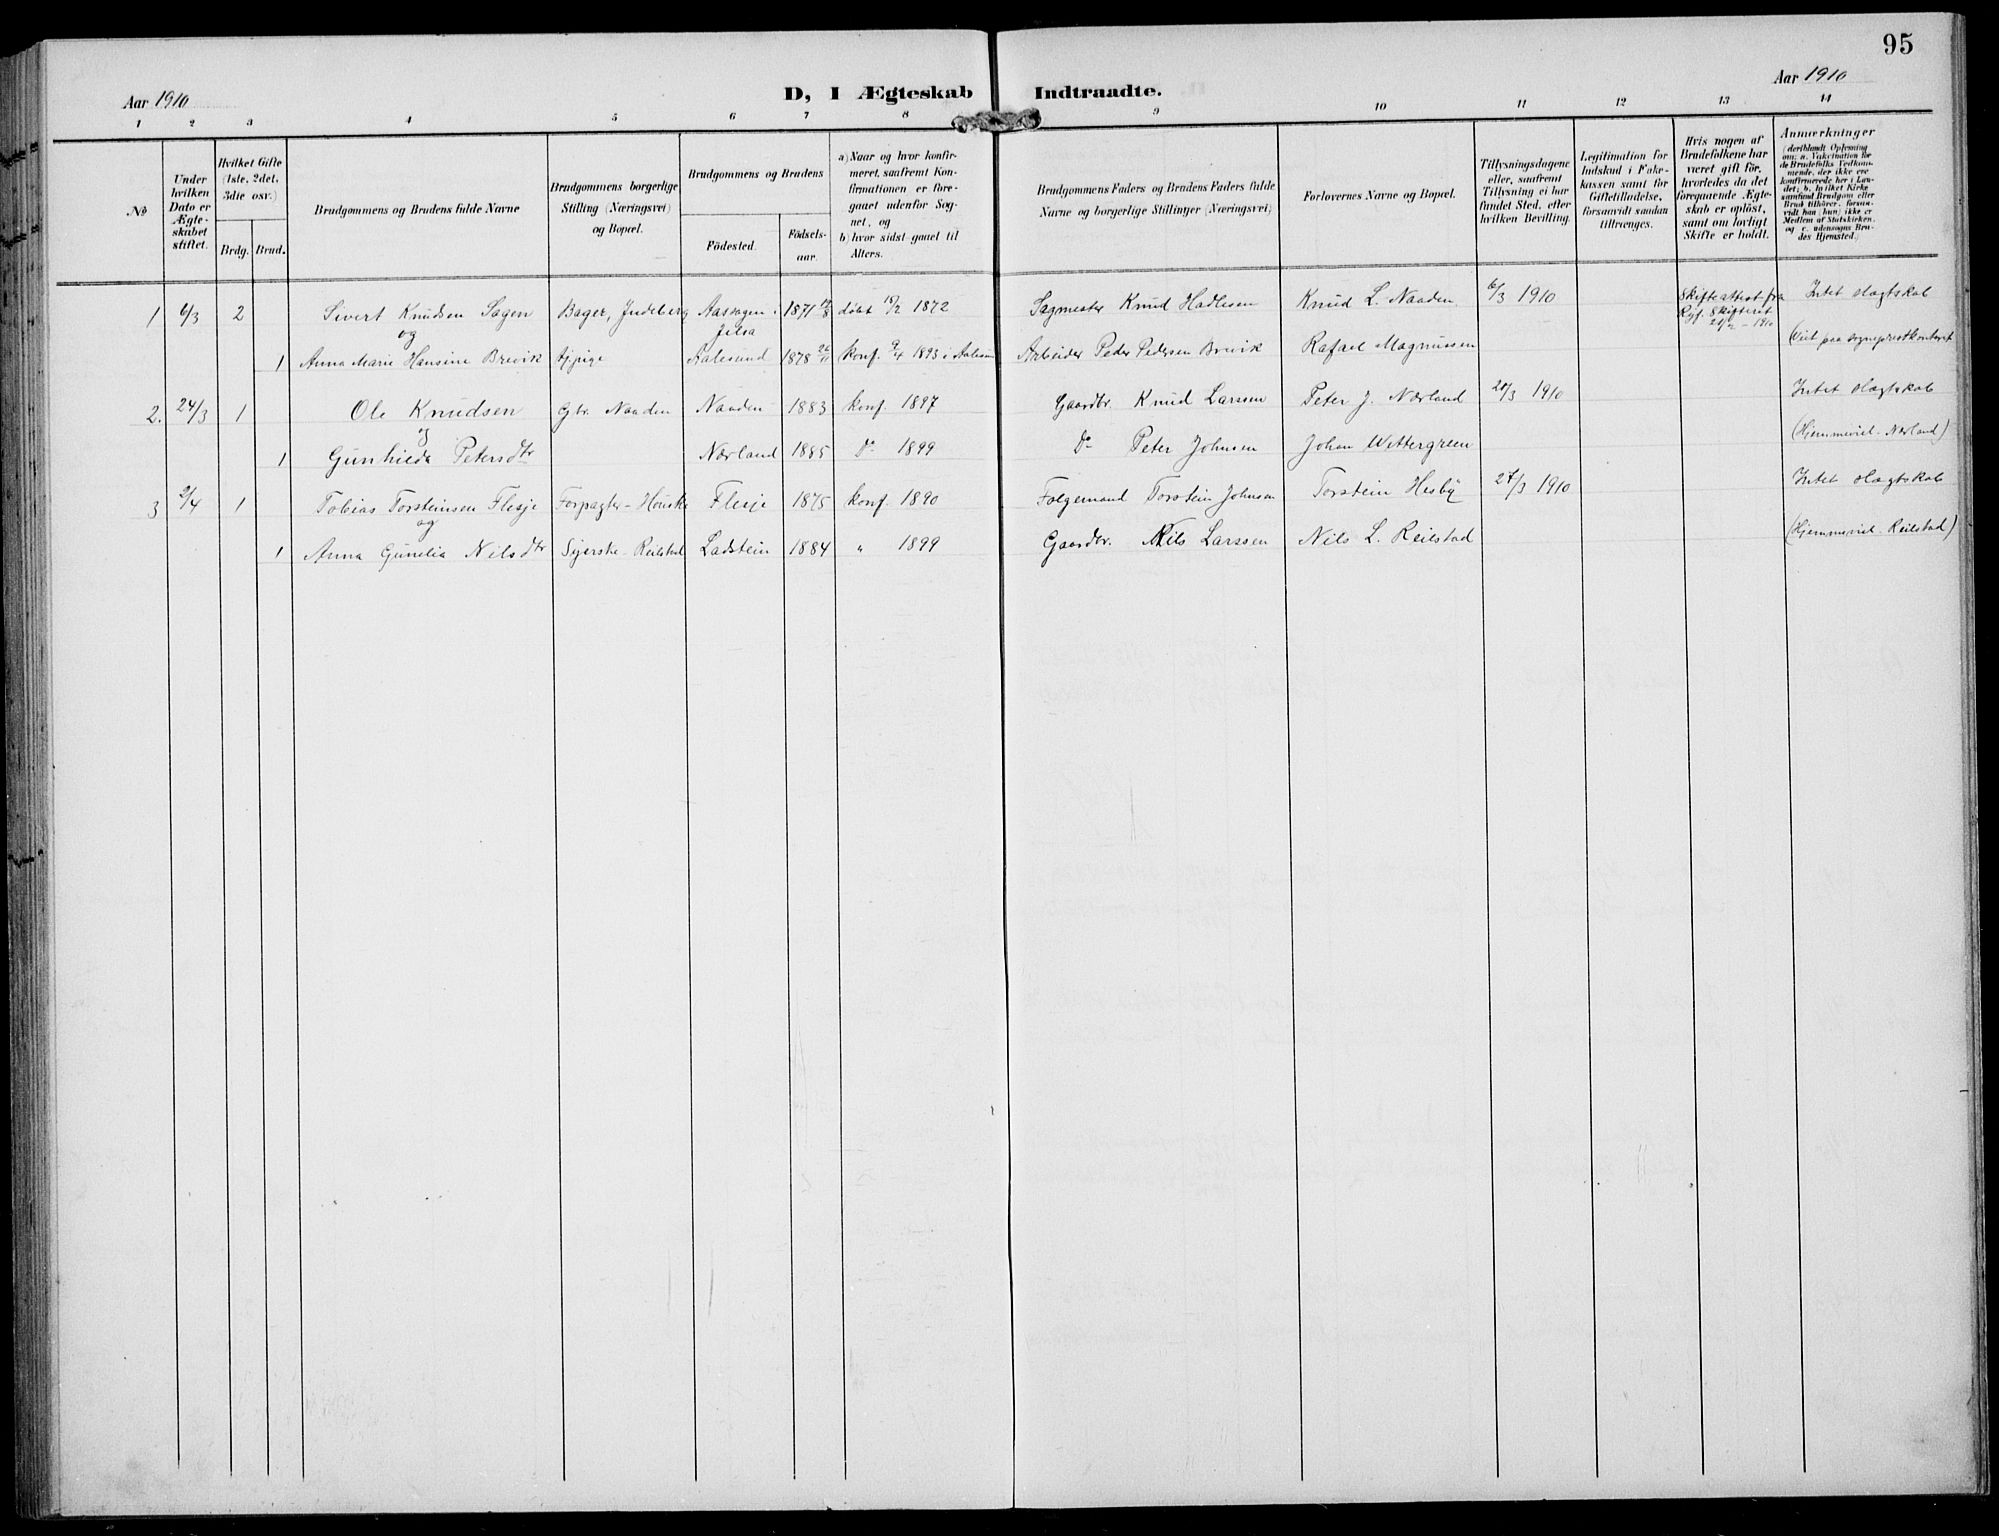 95
Aar 1910
D, I Ægteskab Indtraadte.
Aar 1910
1 2 3 4 5 6 7 8 9 10 11 12 13 14
No
Under hvilken Dato er Ægteskabet stiftet.
Hvilket Gifte (1ste, 2det, 3die osv.)
Brdg. Brud.
Brudgommens og Brudens fulde Navne
Brudgommens borgerlige Stilling (Næringsvei) og Bopæl.
Brudgommens og Brudens
Födested.
Födselsaar.
a) Naar og hvor konfirmeret, saafremt Konfirmationen er foregaaet udenfor Sognet, og
b) hvor sidst gaaet til Alters.
Brudgommens Faders og Brudens Faders fulde Navne og borgerlige Stillinger (Næringsvei)
Forlovernes Navne og Bopæl.
Tillysningsdagene eller, saafremt Tillysning ei har fundet Sted, efter hvilken Bevilling.
Legitimation for Indskud i Enkekassen samt for Giftetilladelse, forsaavidt saadan tiltrænges.
Hvis nogen af Brudefolkene har været gift för, hvorledes da det foregaaende Ægteskab er oplöst, samt om lovligt Skifte er holdt.
Anmærkninger (deriblandt Oplysning om: a. Vakcination for de Brudefolks Vedkommende, der ikke ere konfirmerede her i Landet; b. hvilket Kirkesamfund Brudgom eller Brud tilhörer, forsaavidt han (hun) ikke er Medlem af Statskirken, og c. udensogns Brudes Hjemsted.)
1 6/3 2 Sivert Knudsen Sagen Bager, Judeberg Aassagen i Jelsa 1871 døbt 18/2 1872 Sagmester Knud Hadlesen Knud L. Naaden 6/3 1910 Skifteattest fra Ryf. Skifteret 21/2 - 1910 Intet slagtskab
og
1 Anna Marie Hansine Brevik tjpige Aalesund 1878 konf. 9/4 1893 i Aalesund Arbeider Peder Pedersen Brevik Rafael Magnussen (Viet paa sogneprestkontoret
2. 24/3 1 Ole Knudsen Gbr. Naaden Naaden 1883 konf. 1897 Gaardbr. Knud Larssen Peter J. Nærland 20/3 1910 Intet slagtskab
og
1 Gunhilda Petersdtr Nærland 1885 Do 1899 Do Peter Johnsen Johan Wettergreen (Hjemmeviel. Nærland)
3 2/4 1 Tobias Torsteinsen Flesje Forpagter - Houske Flesje 1875 konf. 1890 Folgemand Torstein Johnsen Torstein Hesby 27/3 1910 Intet slagtskab
og
1 Anna Gunelia Nilsdtr Syerske - Reilstad Ladstein 1884 " 1899 Gaardbr. Nils Larssen Nils L. Reilstad (Hjemmeviel. Reilstad)